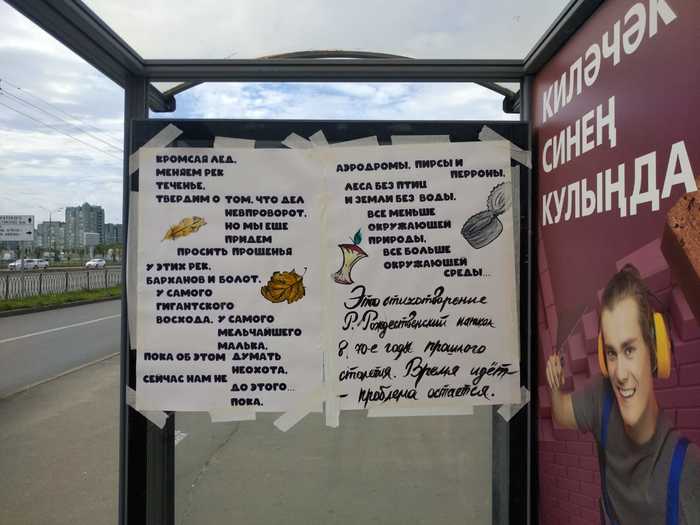 КРОМСАЯ ЛЕД,
МЕНЯЕМ РЕК
ТЕЧЕНЬЕ,
ТВЕРДИМ О ТОМ, ЧТО ДЕЛ
НЕВПРОВОРОТ,
НО МЫ ЕЩЕ
ПРИДЕМ
ПРОСИТЬ ПРОЩЕНЬЯ
У ЭТИХ РЕК,
БАРХАНОВ И БОЛОТ,
У САМОГО
ГИГАНТСКОГО
ВОСХОДА, У САМОГО
МЕЛЬЧАЙШЕГО
МАЛЬКА,
ПОКА ОБ ЭТОМ ДУМАТЬ
НЕОХОТА,
СЕЙЧАС НАМ НЕ
ДО ЭТОГО...
ПОКА.
АЭРОДРОМЫ, ПИРСЫ И
ПЕРРОНЫ,
ЛЕСА БЕЗ ПТИЦ
И ЗЕМЛИ БЕЗ ВОДЫ,
ВСЕ МЕНЬШЕ
ОКРУЖАЮЩЕЙ
ПРИРОДЫ,
ВСЕ БОЛЬШЕ
ОКРУЖАЮЩЕЙ
СРЕДЫ...
Это стихотворение
Р. Рождественский написал
в 70-е годы прошлого
столетия. Время идёт -
- проблема остается.
КИЛӘЧӘК
СИНЕҢ
КУЛЫҢДА